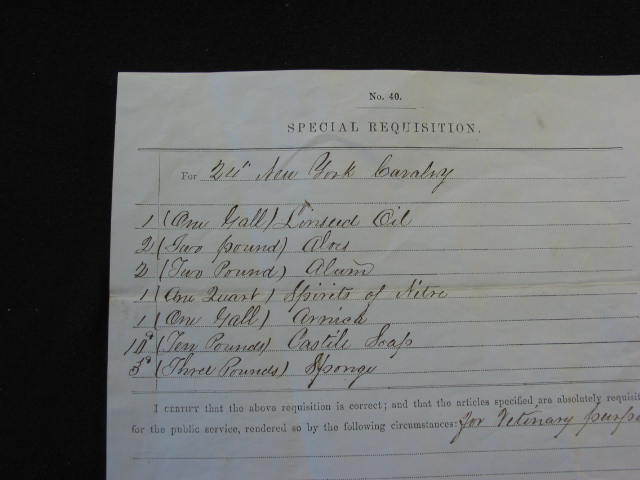 No. 40.
SPECIAL REQUISITION.
For 24th New York Cavalry
1 (One Gall) Linseed Oil
2 (Two pound) Aloes
2 (Two Pound) Alum
1 (One Quart) Spirits of Nitre
1 (One Gall) Arnica
10 (Ten Pounds) Castile Soap
3 (Three Pounds) Sponge
I CERTIFY that the above requisition is correct; and that the articles specified are absolutely requisit
for the public service, rendered so by the following circumstances: for Vetinary purpo